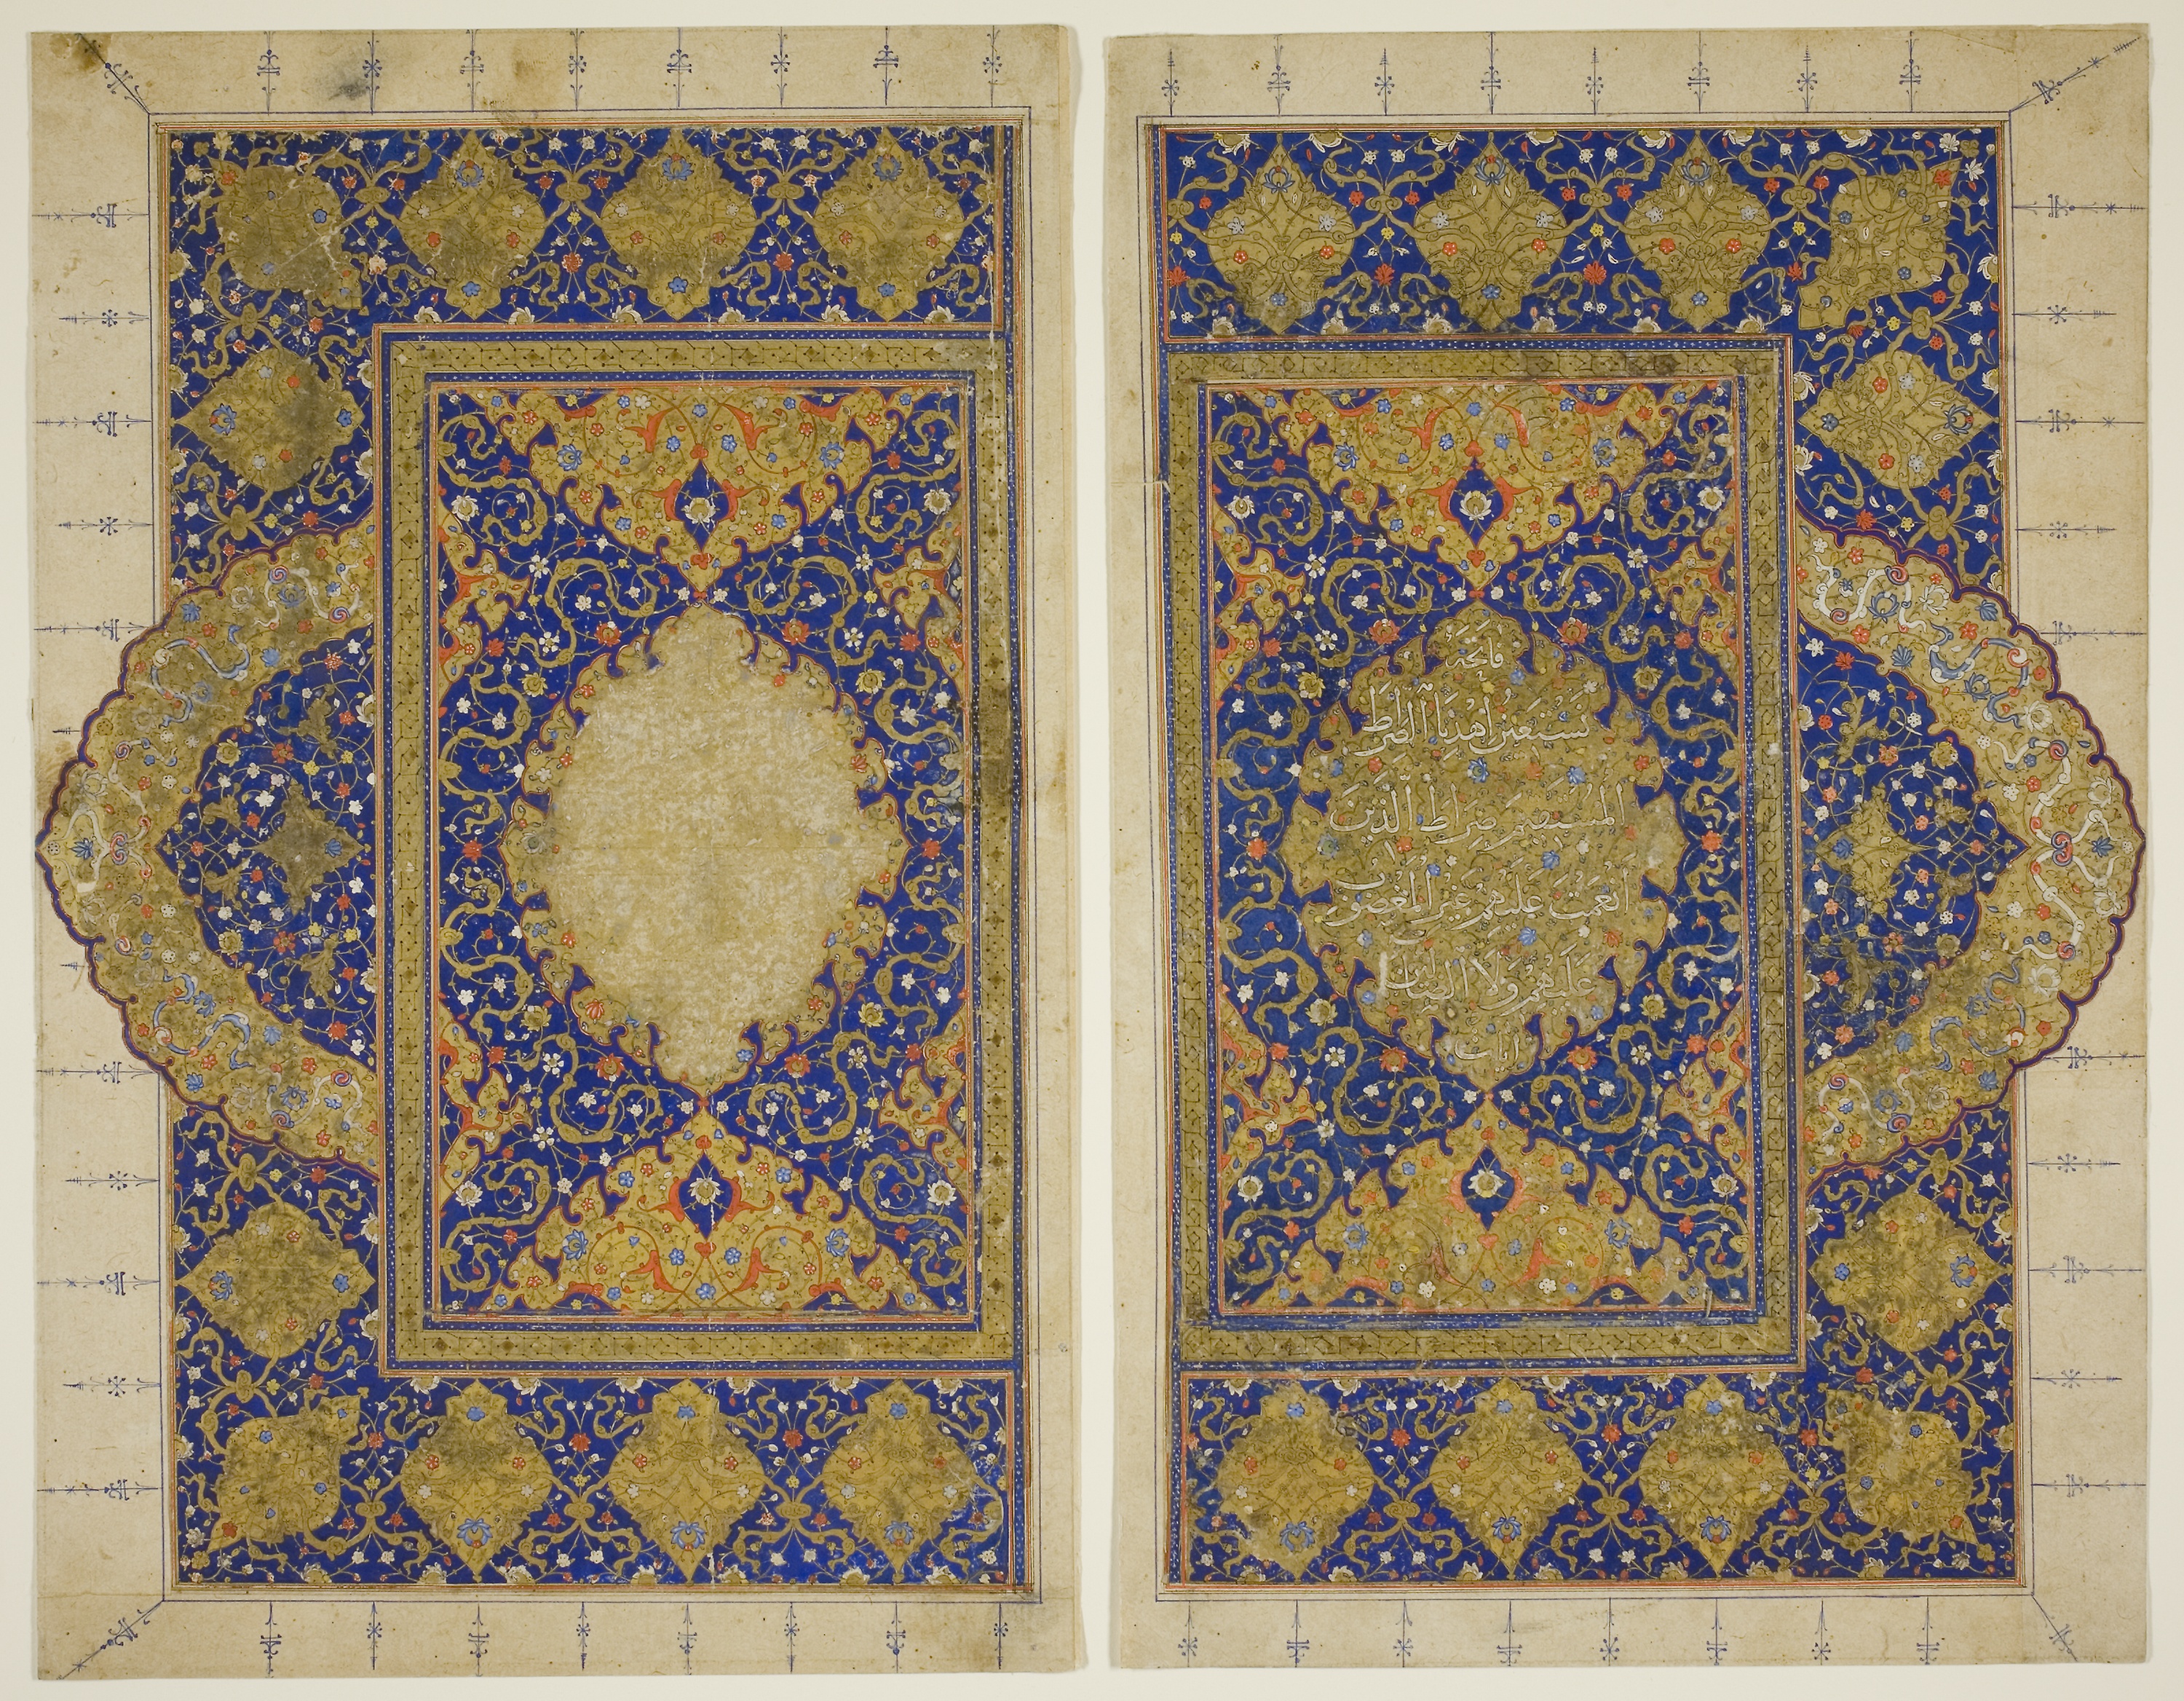 فاتحة
نَسْتَعِينُ اِهْدِنَا الصِّرَاطَ
الْمُسْتَقِيمَ صِرَاطَ الَّذِينَ
اَنْعَمْتَ عَلَيْهِمْ غَيْرِ الْمَغْضُوبِ
عَلَيْهِمْ وَلَا الضَّالِّينَ
ايات